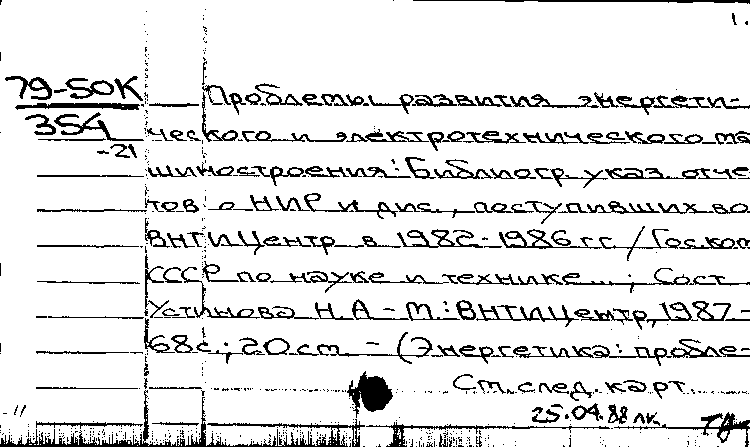 1.
79-50К
354
-21
Проблемы развития энергети-
ческого и электротехнического ма
шиностроения: Библиогр. указ. отче
тов о НИР и дис., поступивших во
ВНТИЦентр в 1982-1986 гг. / Гос.ком
СССР по науке и технике...; Сост.
Устинова Н.А - М.: ВНТИЦентр, 1987 -
68с.; 20 см. - (Энергетика: пробле-
См. след. карт.
25.04.88 лк.